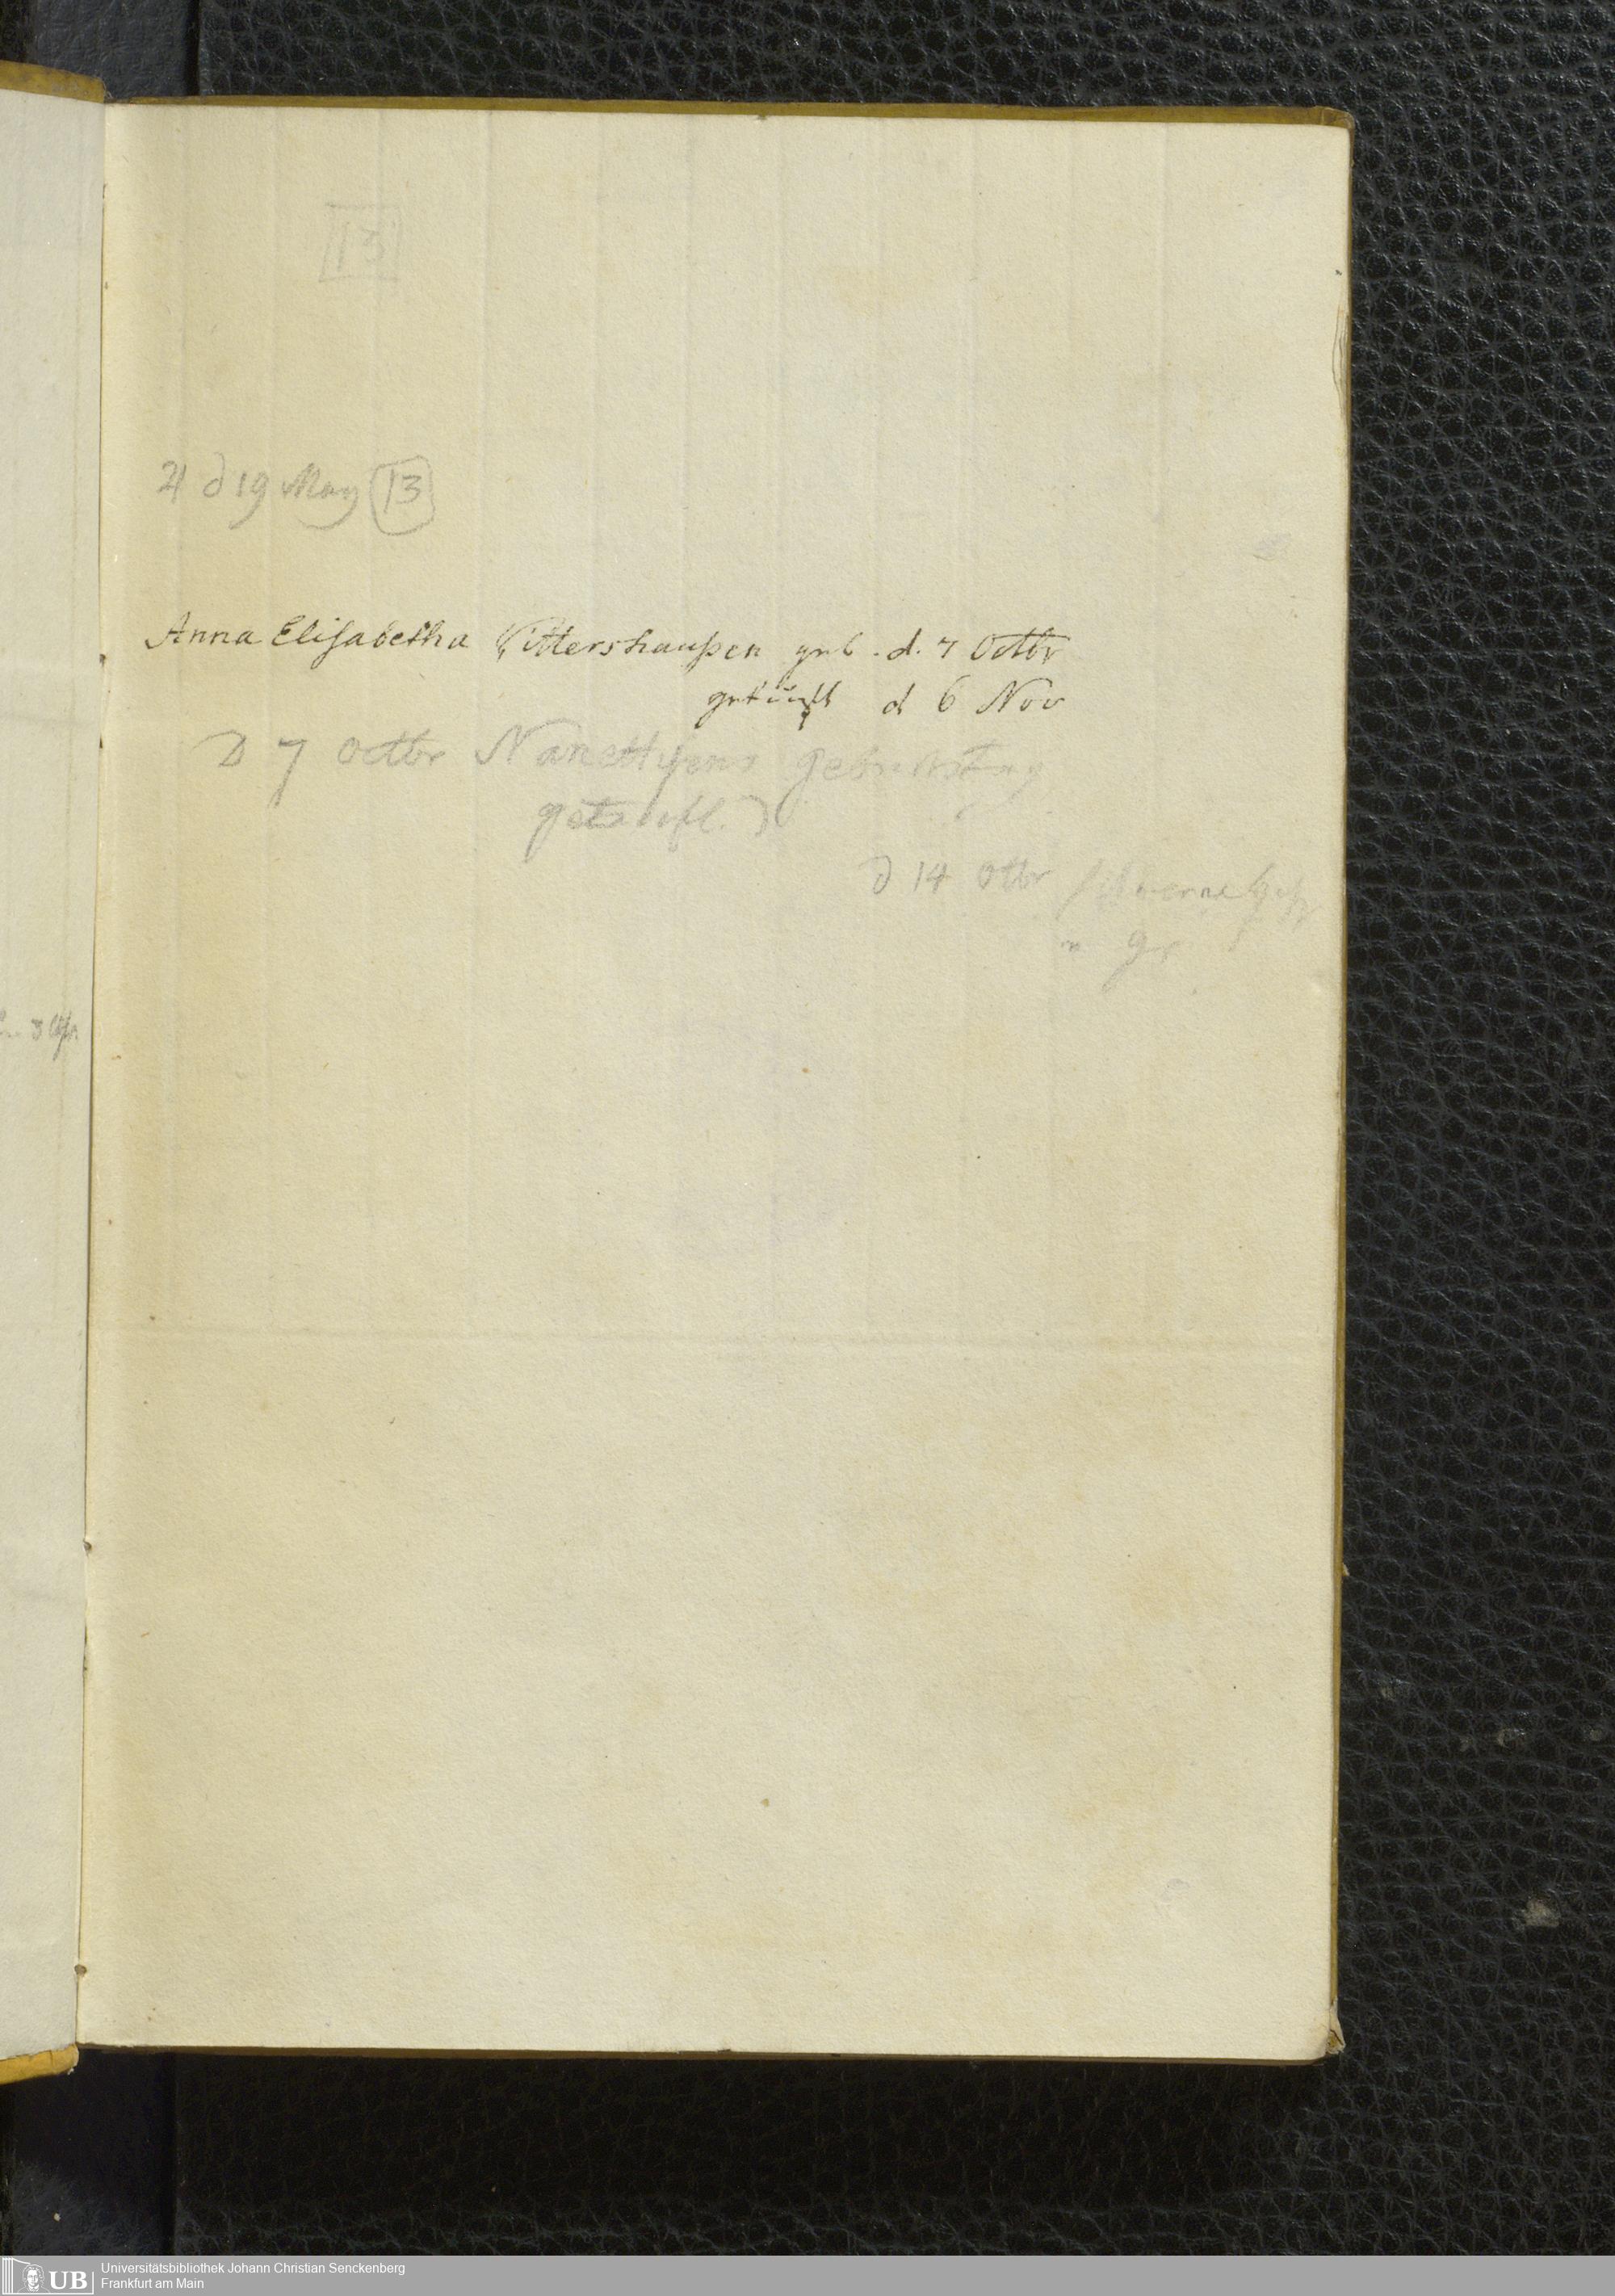 13
♃ d 19 May 13
Anna Elisabetha Rittershaußen geb. d. 7 Octbr
getauft d 6 Nov
D 7 Octbr Nanettgens geburtstag
getauft. D
d 14 Otbr
3 Apr.
Universitätsbibliothek Johann Christian Senckenberg
UB Frankfurt am Main